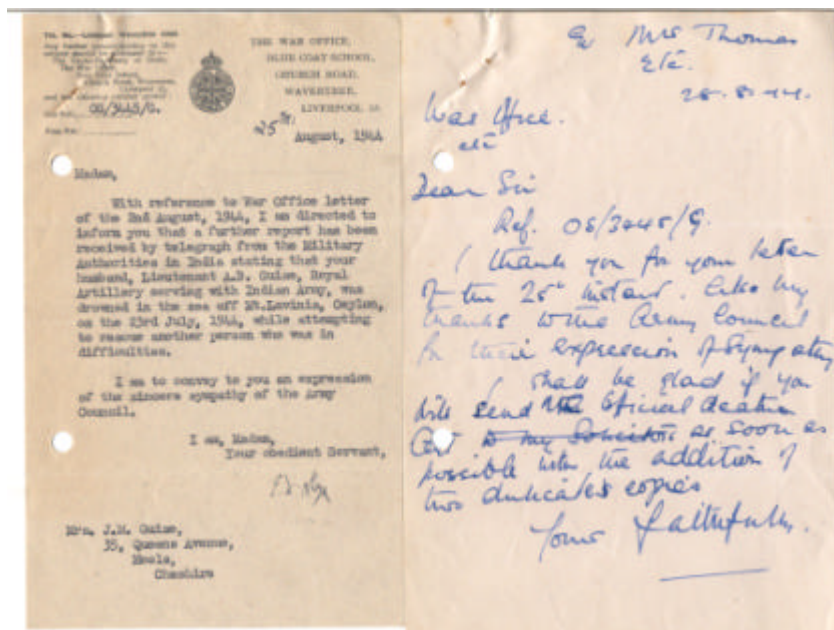 THE WAR OFFICE,
BLUE COAT SCHOOL,
CHURCH ROAD,
WAVERTREE,
LIVERPOOL 15
OS/3445/G.
25th August, 1944
Madam,
With reference to War Office letter
of the 2nd August, 1944, I am directed to
inform you that a further report has been
received by telegraph from the Military
Authorities in India stating that your
husband, Lieutenant A.B. Guise, Royal
Artillery serving with Indian Army, was
drowned in the sea off Mt.Lavinia, Ceylon,
on the 23rd July, 1944, while attempting
to rescue another person who was in
difficulties.
I am to convey to you an expression
of the sincere sympathy of the Army
Council.
I am, Madam,
Your obedient Servant,
Mrs. J.M. Guise,
35, Queens Avenue,
Meols,
Cheshire
Mrs Thomas
Etc.
28.8.44.
War Office.
etc
Dear Sir
Ref. OS/3445/G.
I thank you for your letter
of the 25th instant. Also my
thanks to the Army Council
for their expression of sympathy
I shall be glad if you
will send the official death
Cert to my Solicitors as soon as
possible with the addition of
two duplicates copies
Yours faithfully.